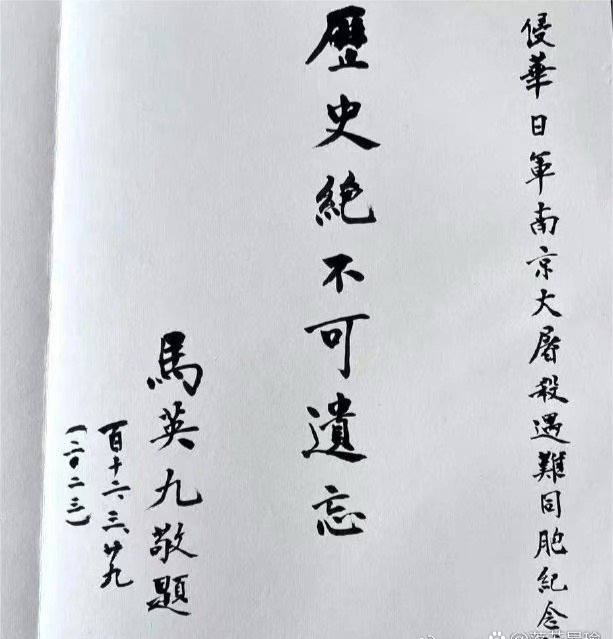 侵華日軍南京大屠殺遇難同胞紀念
歷史絕不可遺忘
馬英九敬題
百十六、三、廿九
(二〇二三)